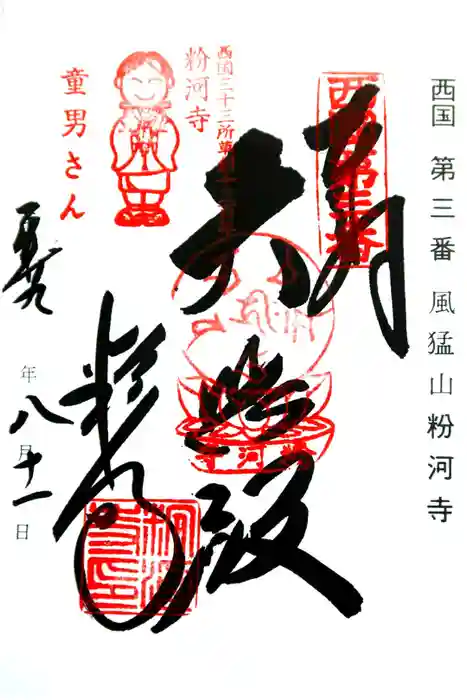 西国 第三番 風猛山 粉河寺
奉拝
西国第三番
大悲殿
粉河寺
西国三十三所草創
粉河寺
童男さん
年八月十一日